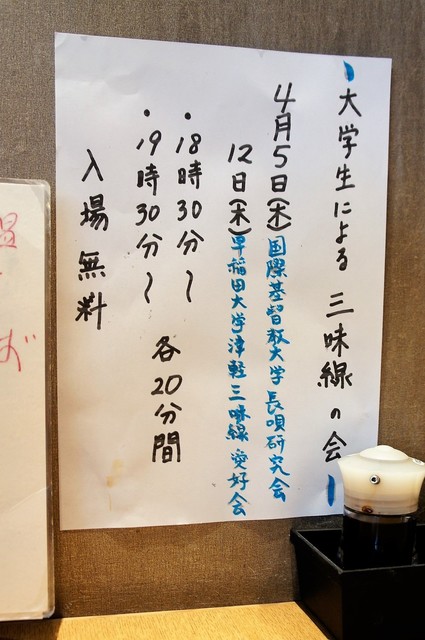 大学生による三味線の会
4月5日(木)国際基督教大学長唄研究会
12日(木)早稲田大学津軽三味線愛好会
・18時30分〜
・19時30分〜
各20分間
入場無料